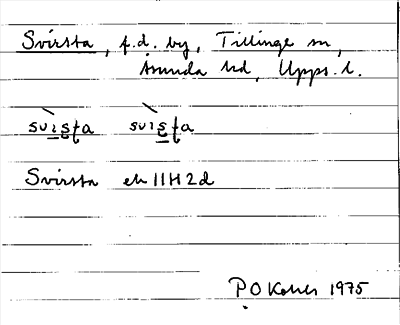 Svirsta, f.d. by, Tillinge sn,
Åsunda hd, Upps. l.
svìṣṭa svìṣṭa
Svirsta ek 11H2d
P O 1975